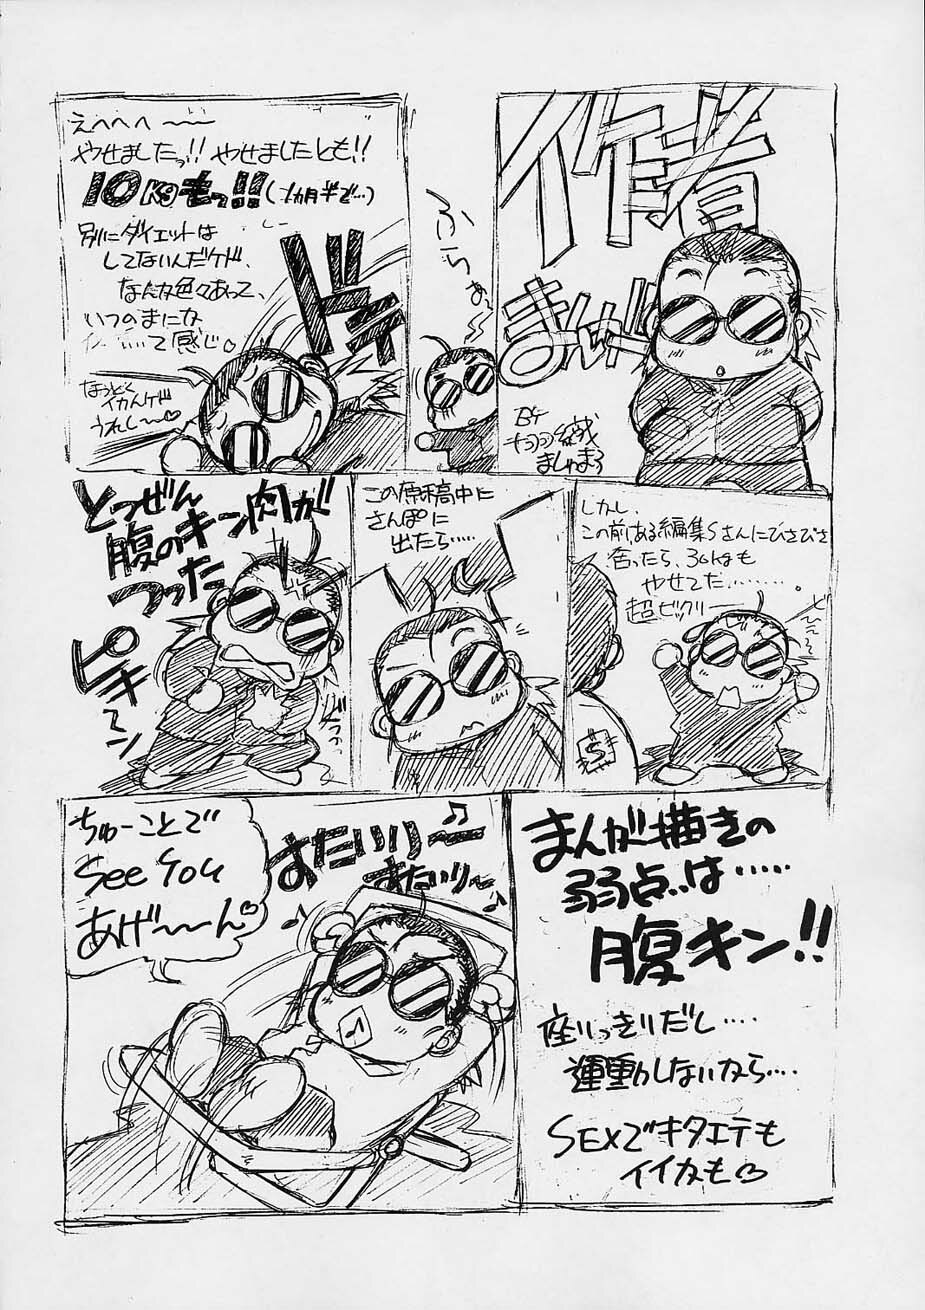 作者
まんが
BY
えへへへ〜〜
やせましたっ!! やせましたとも!!
10kgもっ!! (1カ月半で…)
別にダイエットは
してないんだケド、
なんか色々あって、
いつのまにな
って感じ♡
なっとく
イカんケド
うれし〜♡
ふらぁ
ドキ
しかし、
この前、ある編集Sさんにひさびさ
会ったら、30kgも
やせてた………。
超ビックリー
S
この原稿中に
さんぽに
出たら……
とつぜん
腹のキン肉が
つった
ピキーン
まんが描きの
弱点は……
腹キン!!
座りっきりだし….
運動しないから….
SEXでキタエテも
イイかも♡
ちゅーことで
See You
あげ〜〜ん♡